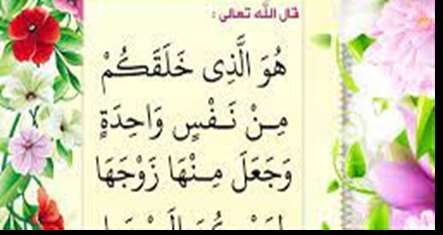 قال الله تعالى :
هُوَ الَّذِى خَلَقَكُمْ
مِنْ نَفْسٍ وَاحِدَةٍ
وَجَعَلَ مِنْهَا زَوْجَهَا